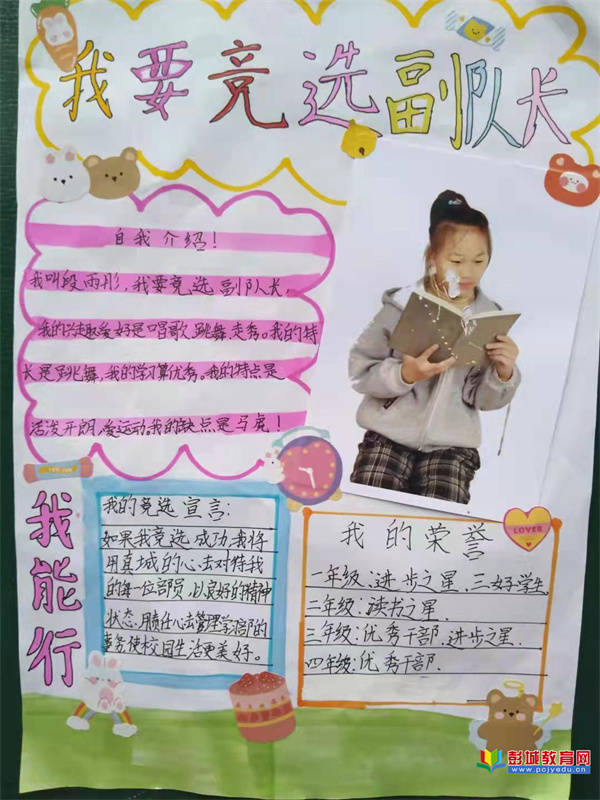 我要竞选副队长
自我介绍！
我叫段雨彤，我要竞选副队长，
我的兴趣爱好是唱歌、跳舞、走秀。我的特
长是跳舞，我的学习算优秀。我的特点是
活泼开朗，爱运动。我的缺点是马虎！
我能行
我的竞选宣言：
如果我竞选成功，我将
用真城的心去对待我
的每一位部员，以良好的精神
状态，用责任心去管理学习部的
事务，使校园生活更美好。
LOVER
我的荣誉
一年级：进步之星、三好学生。
二年级：读书之星.
三年级：优秀干部、进步之星.
四年级：优秀干部.
彭城教育网
www.pcjyedu.cn